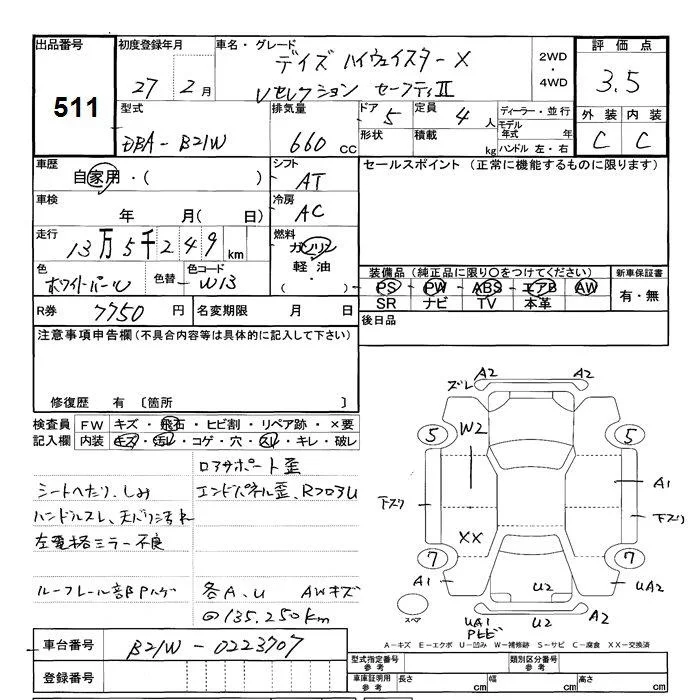 出品番号 初度登録年月 車名・グレード 評価点
511
27年2月
デイズ ハイウェイスターX
Vセレクション セーフティII
2WD
・
4WD
3.5
外装 内装
C C
型式 排気量 ドア 定員 ディーラー・並行
DBA-B21W 660cc 5 4人
形状 積載 kg モデル年式 年
ハンドル 左・右
車歴 シフト セールスポイント(正常に機能するものに限ります)
自家用・( ) AT
車検 冷房
年 月( 日) AC
走行 燃料
13万5千249km ガソリン
軽油・
( )
色 色替 色コード
ホワイトパール W13
装備品(純正品に限り○をつけてください) 新車保証書
PS PW ABS エアB AW 有・無
SR ナビ TV 本革
R券 7750円 名変期限 月 日 後日品
注意事項申告欄(不具合内容等は具体的に記入して下さい)
修復歴 有 〔箇所 〕
検査員 FW キズ・飛石・ヒビ割・リペア跡・×要
記入欄 内装 キズ・汚レ・コゲ・穴・スレ・キレ・破レ
コアサポート歪
シートへたり、しみ エンドパネル歪、RフロアU
ハンドルスレ、天バリ汚れ
左電格ミラー不良
ルーフレール部Pハゲ 各A、U AWキズ
@135.250km
ズレ A2 A2
5 W2 5
A1
下スリ 下スリ
XX
7 7
A1 U2 UA2
スペア UA1 U2 A2
A-キズ E-エクボ U-凹み W-補修跡 S-サビ C-腐食 XX-交換済
車台番号 B21W-0223707
登録番号
型式指定番号 参考 類別区分番号 参考
車庫証明用 参考 長さ cm 幅 cm 高さ cm